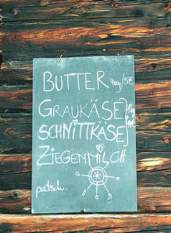 BUTTER
GRAUKÄSE
SCHNITTKÄSE
ZIEGENMILCH